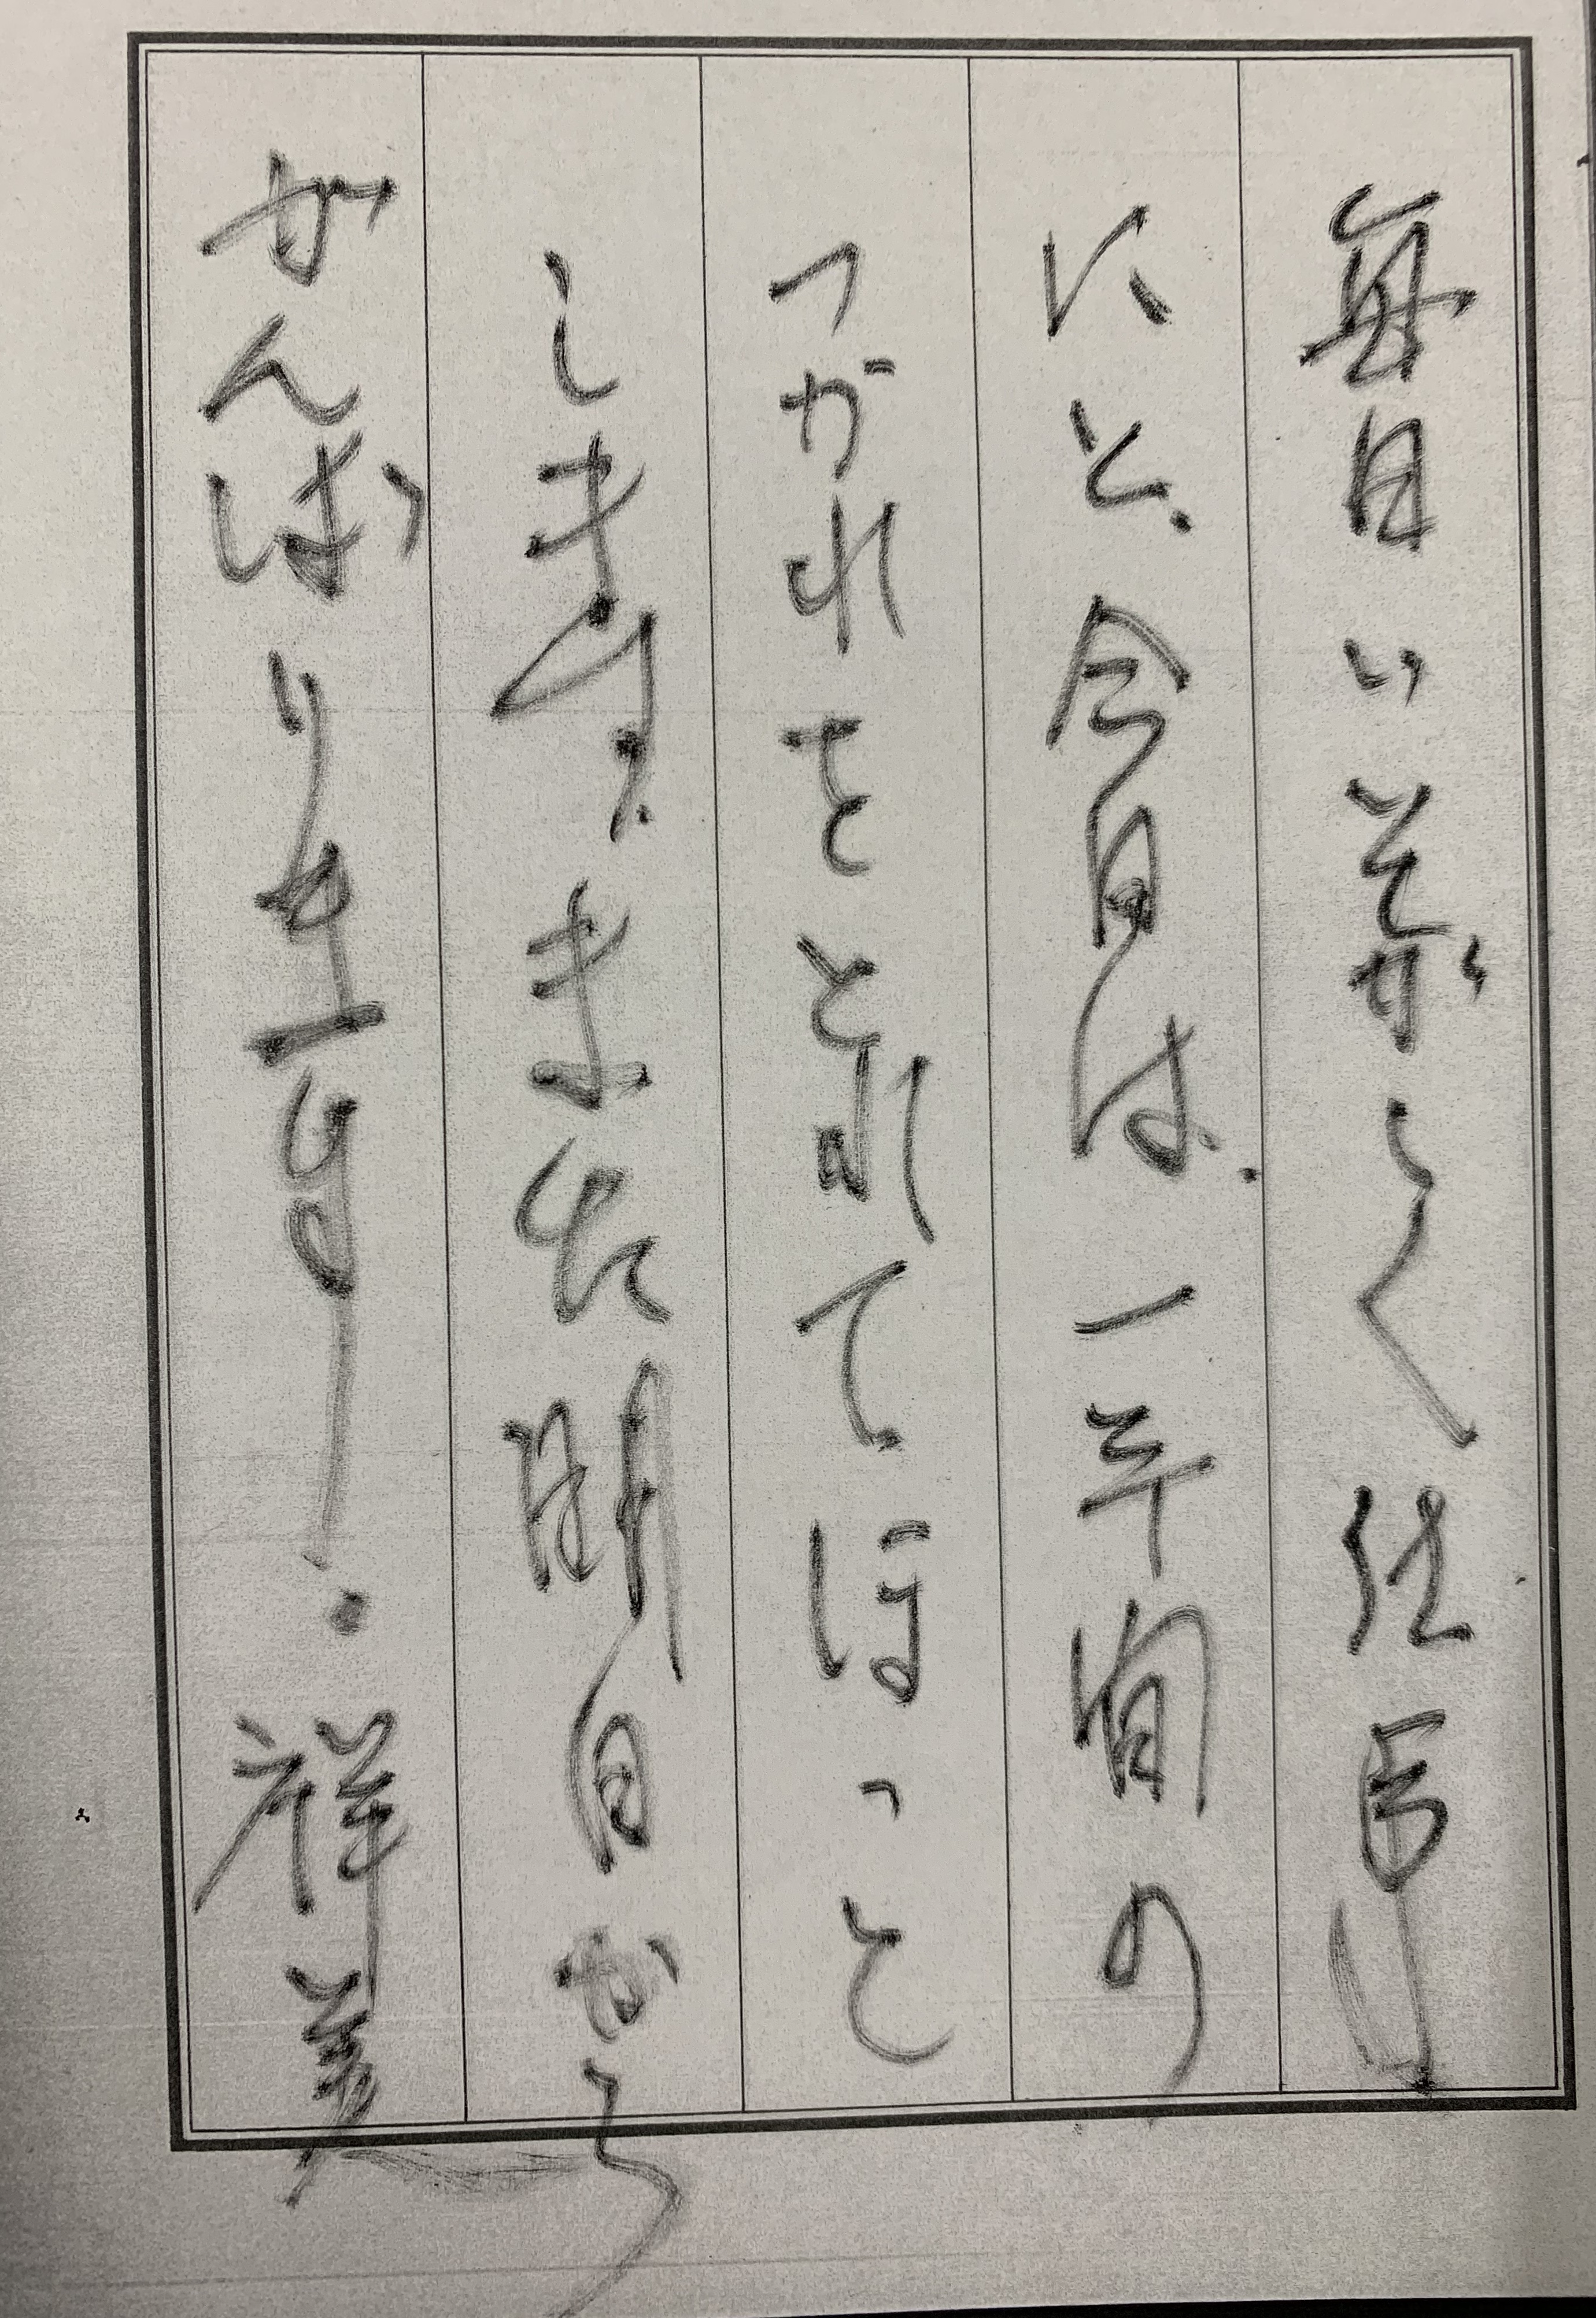 毎日いそがしく仕事
に と、今日は、一年間の
つかれをとれて、ほっと
します。また明日から
がんばります。祥美